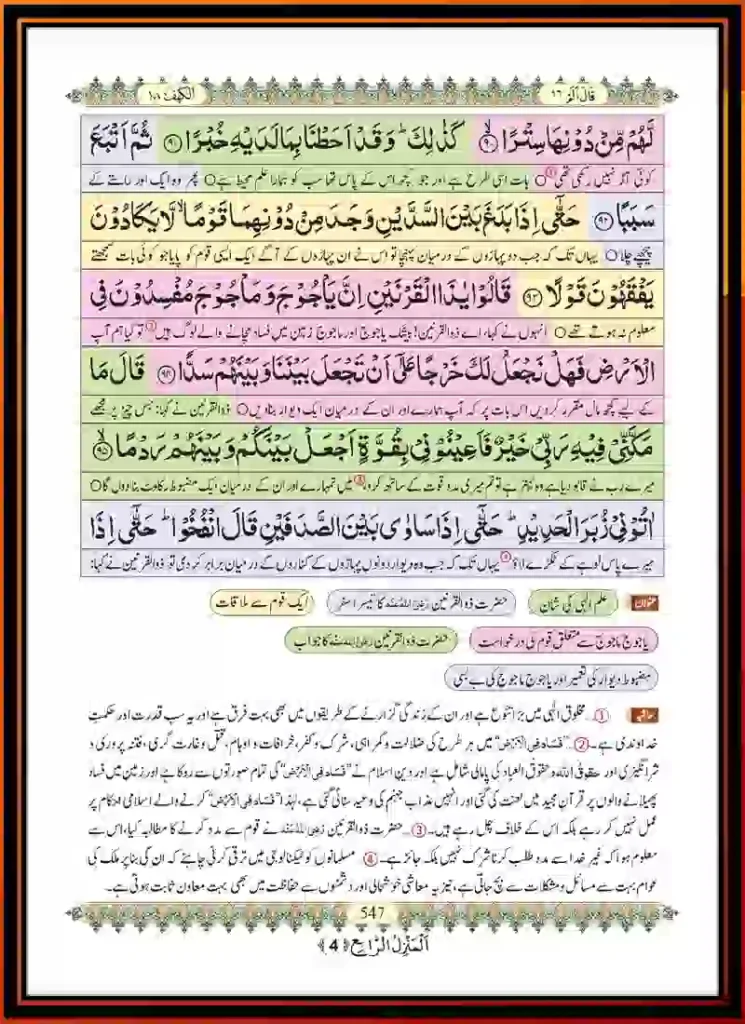 قال الم ١٦
الكهف ١٨
لَّهُمْ مِّنْ دُوْنِهَا سِتْرًا ﴿٩٠﴾ كَذٰلِكَ ؕ وَقَدْ اَحَطْنَا بِمَا لَدَيْهِ خُبْرًا ﴿٩١﴾ ثُمَّ اَتْبَعَ
کوئی آڑ نہیں رکھی تھی ① ○ بات اسی طرح ہے اور جو کچھ اس کے پاس تھا سب کو ہمارا علم محیط ہے ○ پھر وہ ایک اور راستے کے
سَبَبًا ﴿٩٢﴾ حَتّٰۤى اِذَا بَلَغَ بَيْنَ السَّدَّيْنِ وَجَدَ مِنْ دُوْنِهِمَا قَوْمًا ۙ لَّا يَكَادُوْنَ
پیچھے چلا ○ یہاں تک کہ جب دو پہاڑوں کے درمیان پہنچا تو اس نے ان پہاڑوں کے آگے ایک ایسی قوم کو پایا جو کوئی بات سمجھتے
يَفْقَهُوْنَ قَوْلًا ﴿٩٣﴾ قَالُوْا يٰذَا الْقَرْنَيْنِ اِنَّ يَاْجُوْجَ وَمَاْجُوْجَ مُفْسِدُوْنَ فِى
معلوم نہ ہوتے تھے ○ انہوں نے کہا، اے ذوالقرنین! بیشک یاجوج اور ماجوج زمین میں فساد مچانے والے لوگ ہیں ② تو کیا ہم آپ
الْاَرْضِ فَهَلْ نَجْعَلُ لَكَ خَرْجًا عَلٰۤى اَنْ تَجْعَلَ بَيْنَنَا وَبَيْنَهُمْ سَدًّا ﴿٩٤﴾ قَالَ مَا
کے لیے کچھ مال مقرر کردیں اس بات پر کہ آپ ہمارے اور ان کے درمیان ایک دیوار بنادیں ○ ذوالقرنین نے کہا: جس چیز پر مجھے
مَكَّنِّىْ فِيْهِ رَبِّىْ خَيْرٌ فَاَعِيْنُوْنِىْ بِقُوَّةٍ اَجْعَلْ بَيْنَكُمْ وَبَيْنَهُمْ رَدْمًا ﴿٩٥﴾
میرے رب نے قابو دیا ہے وہ بہتر ہے تو تم میری مدد قوت کے ساتھ کرو، ③ میں تمہارے اور ان کے درمیان ایک مضبوط رکاوٹ بنادوں گا ○
اٰتُوْنِىْ زُبَرَ الْحَدِيْدِ ؕ حَتّٰۤى اِذَا سَاوٰى بَيْنَ الصَّدَفَيْنِ قَالَ انْفُخُوْا ؕ حَتّٰۤى اِذَا
میرے پاس لوہے کے ٹکڑے لاؤ ④ یہاں تک کہ جب وہ دیوار دونوں پہاڑوں کے کناروں کے درمیان برابر کردی تو ذوالقرنین نے کہا:
عنوان علم الٰہی کی شان حضرت ذوالقرنین رَضِيَ اللهُ عَنْهُ کا تیسرا سفر ایک قوم سے ملاقات
یاجوج ماجوج سے متعلق قوم کی درخواست حضرت ذوالقرنین رَضِيَ اللهُ عَنْهُ کا جواب
مضبوط دیوار کی تعمیر اور یاجوج ماجوج کی بے بسی
حاشیہ ①۔ مخلوق الٰہی میں بڑا تنوع ہے اور ان کے زندگی گزارنے کے طریقوں میں بھی بہت فرق ہے اور یہ سب قدرت اور حکمتِ
خداوندی ہے۔ ②۔ "فَسَاد فِي الْاَرْض" میں ہر طرح کی ضلالت و گمراہی، شرک و کفر، خرافات و اوہام، قتل و غارت گری، فتنہ پروری و
شر انگیزی اور حقوق اللہ و حقوق العباد کی پامالی شامل ہے اور دین اسلام نے "فَسَاد فِي الْاَرْض" کی تمام صورتوں سے روکا ہے اور زمین میں فساد
پھیلانے والوں پر قرآنِ مجید میں لعنت کی گئی اور انہیں عذاب جہنم کی وعید سنائی گئی ہے، لہٰذا "فَسَاد فِي الْاَرْض" کرنے والے اسلامی احکام پر
عمل نہیں کر رہے بلکہ اس کے خلاف چل رہے ہیں۔ ③۔ حضرت ذوالقرنین رَضِيَ اللهُ عَنْهُ نے قوم سے مدد کرنے کا مطالبہ کیا، اس سے
معلوم ہوا کہ غیر خدا سے مدد طلب کرنا شرک نہیں بلکہ جائز ہے۔ ④۔ مسلمانوں کو ٹیکنالوجی میں ترقی کرنی چاہئے کہ ان کی بنا پر ملک کی
عوام بہت سے مسائل و مشکلات سے بچ جاتی ہے، نیز یہ معاشی خوشحالی اور دشمنوں سے حفاظت میں بھی بہت معاون ثابت ہوتی ہے۔
547
اَلْمَنْزِلُ الرَّابِع ﴿4﴾